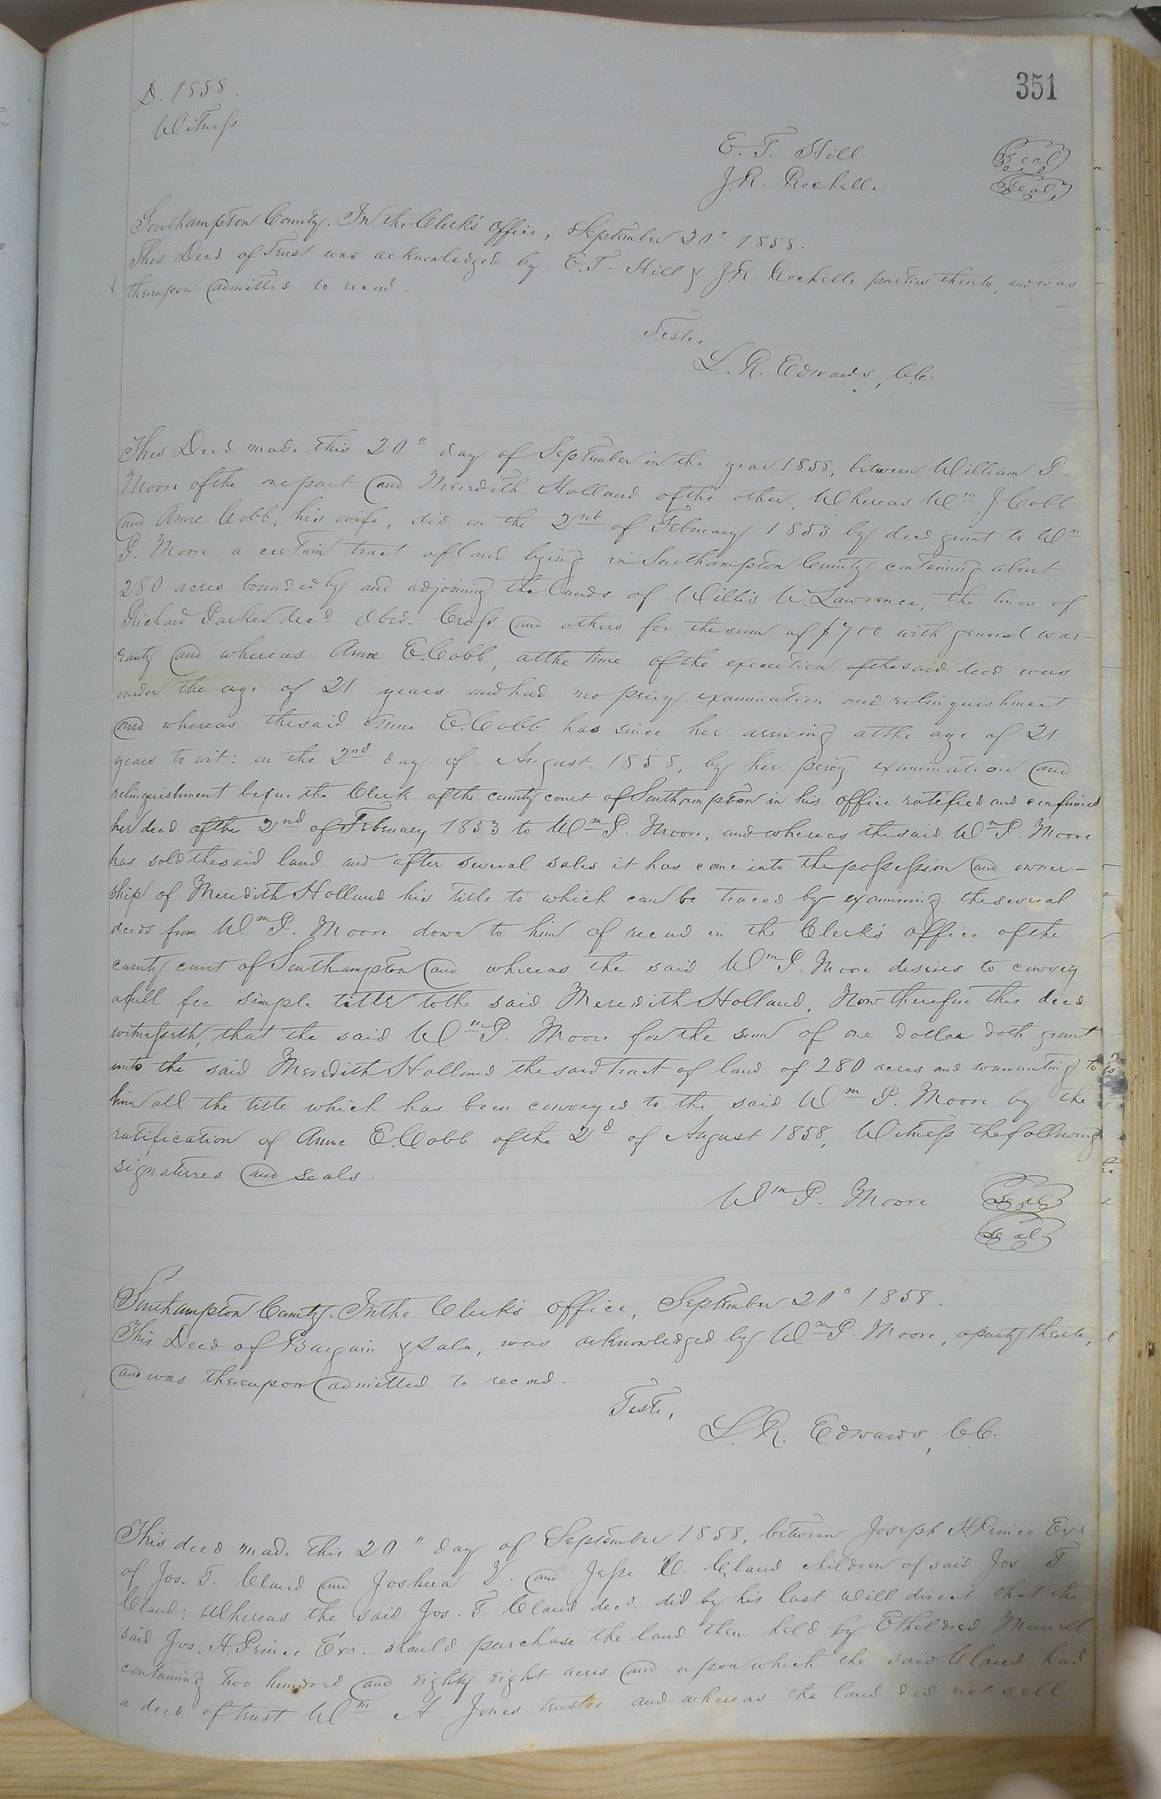 351
D. 1858.
Witness
E. T. Hill Seal
J. R. Rochelle Seal
Southampton County. In the Clerk's office, September 20" 1858.
This Deed of Trust was acknowledged by E. T. Hill & J. R. Rochelle parties thereto, and was
thereupon admitted to record.
Teste,
L. R. Edwards, CC.
This Deed made this 20" day of September in the year 1858, between William P.
Moore of the one part and Meredith Holland of the other, Whereas Wm J Cobb
and Anne Cobb, his wife, did on the 2nd of February 1853 by deed grant to Wm
P. Moore a certain tract of land lying in Southampton County containing about
280 acres bounded by and adjoining the lands of Willis W. Lawrence, the lines of
Richard Parker decd. Obed. Cross and others for the sum of $700 with general war-
ranty and whereas Anne E. Cobb, at the time of the execution of the said deed was
under the age of 21 years and had no privy examination and relinquishment
and whereas the said Anne E. Cobb has since her arriving at the age of 21
years to wit: on the 2nd day of August 1858, by her privy examination and
relinquishment before the Clerk of the county court of Southampton in his office ratified and confirmed
her deed of the 2nd of February 1853 to Wm P. Moore, and whereas the said Wm P. Moore
has sold the said land and after several sales it has come into the possession and owner-
ship of Meredith Holland his title to which can be traced by examining the several
deeds from Wm P. Moore down to him of record in the Clerk's office of the
county court of Southampton and whereas the said Wm P. Moore desires to convey
a full fee simple title to the said Meredith Holland, Now therefore this deed
witnesseth, that the said Wm P. Moore for the sum of one dollar doth grant
unto the said Meredith Holland the said tract of land of 280 acres and warranting to
him all the title which has been conveyed to the said Wm P. Moore by the
ratification of Anne E. Cobb of the 2d of August 1858, Witness the following
signatures and seals.
Wm P. Moore Seal
Seal
Southampton County. In the Clerk's office, September 20" 1858.
This Deed of Bargain & Sale, was acknowledged by Wm P. Moore, a party thereto,
and was thereupon admitted to record.
Teste,
L. R. Edwards, CC.
This deed made this 20" day of September 1858, between Joseph H Prince Exr.
of Jos. T. Claud and Joshua and Jesse C. Claud children of said Jos T.
Claud; Whereas the said Jos. T. Claud decd. did by his last will direct that the
said Jos. H. Prince Exr. should purchase the land then held by Etheldred
containing two hundred and eighty eight acres and upon which the said Claud had
a deed of trust Wm A. Jones trustee and whereas the land did not sell